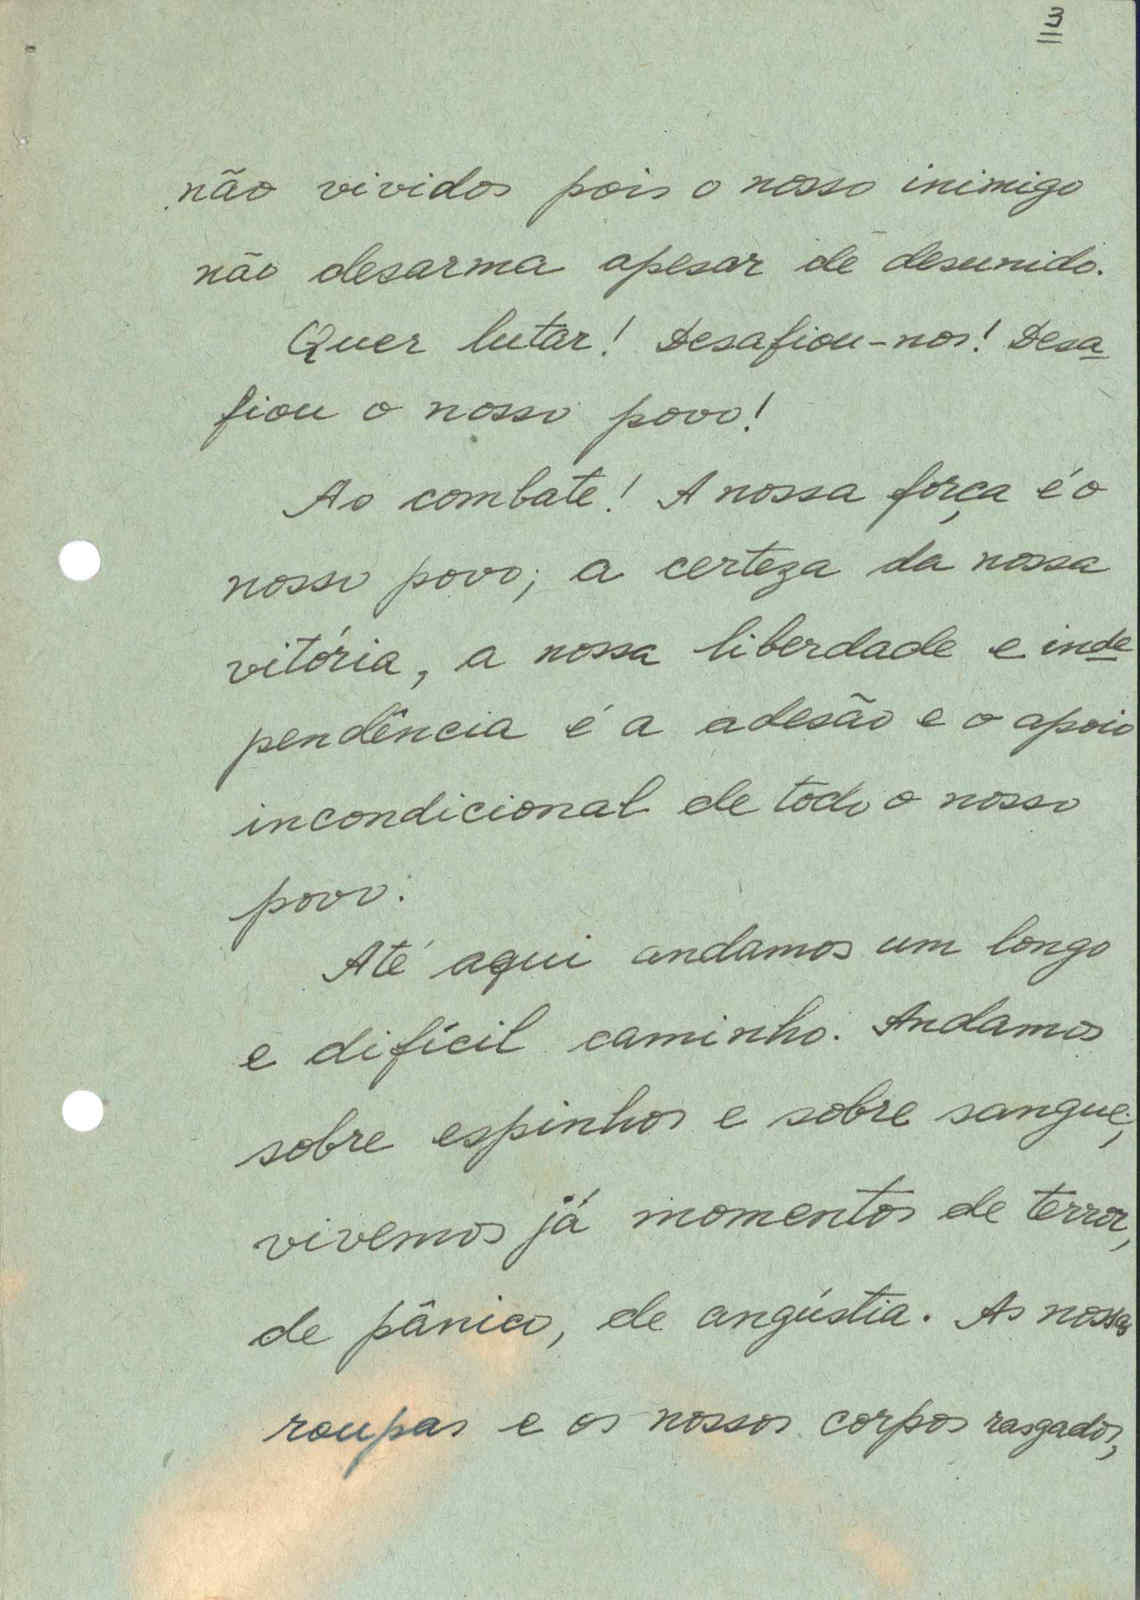 3
não vividos pois o nosso inimigo
não desarma apesar de desunido.
Quer lutar! Desafiou-nos! Desa
fiou o nosso povo!
Ao combate! A nossa força é o
nosso povo; a certeza da nossa
vitória, a nossa liberdade e inde
pendência é a adesão e o apoio
incondicional de todo o nosso
povo.
Até aqui andamos um longo
e difícil caminho. Andamos
sobre espinhos e sobre sangue;
vivemos já momentos de terror,
de pânico, de angústia. As nossas
roupas e os nossos corpos rasgados,